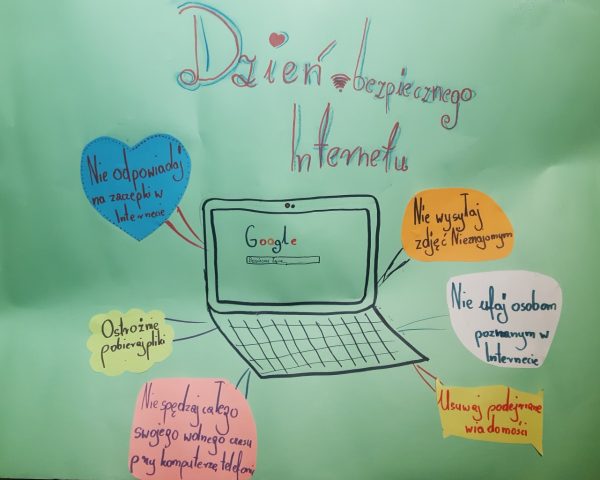 Dzień bezpiecznego
Internetu
Nie odpowiadaj
na zaczepki w
Internecie
Google
Nie wysyłaj
zdjęć Nieznajomym
Nie ufaj osobom
poznanym w
Internecie
Ostrożnie
pobieraj pliki
Nie spędzaj całego
swojego wolnego czasu
przy komputerze, telefonie
Usuwaj podejrzane
wiadomości